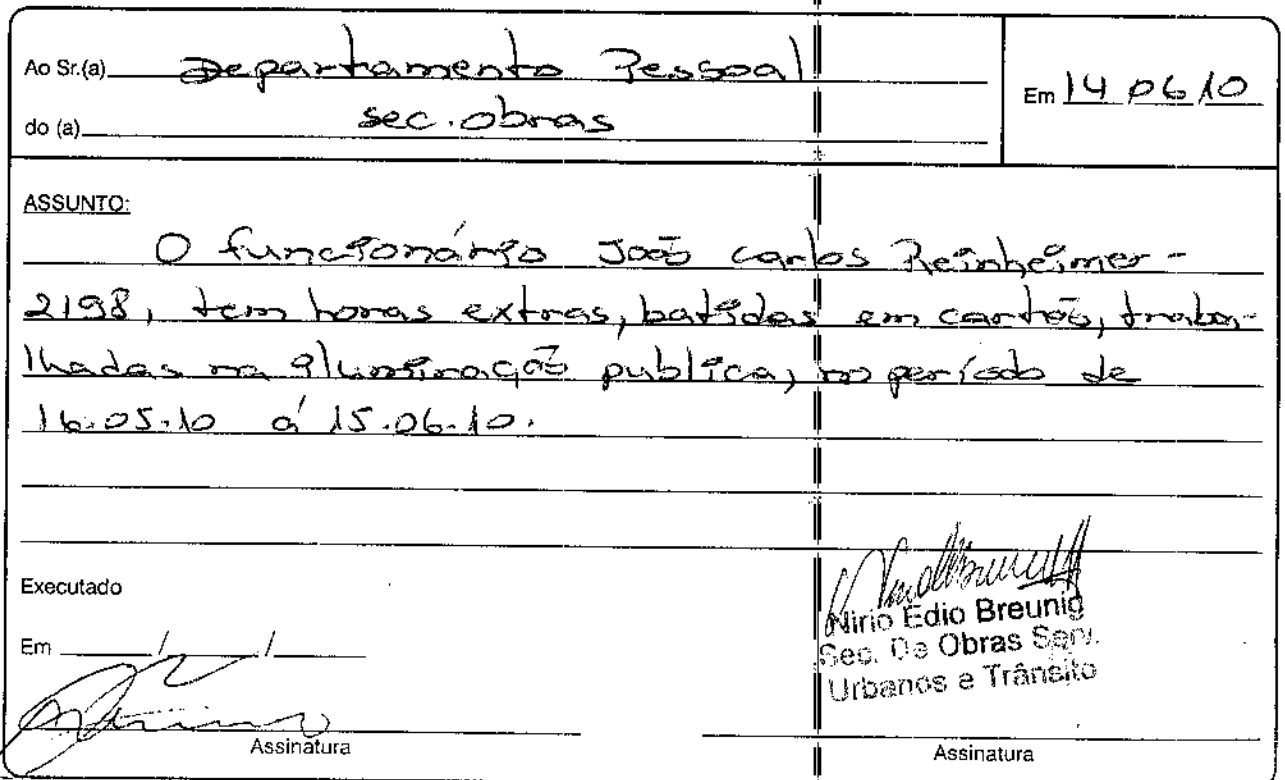 Ao Sr.(a) Departamento Pessoal
Em 14 06 10
do (a) sec. obras
ASSUNTO:
O funcionário João carlos Reinheimer -
2198, tem horas extras, batidas em cartão, traba-
lhadas na iluminação publica, no período de
16.05.10 á 15.06.10.
Executado
Em / /
Assinatura
Nirio Edio Breunig
Sec. De Obras Serv.
Urbanos e Trânsito
Assinatura